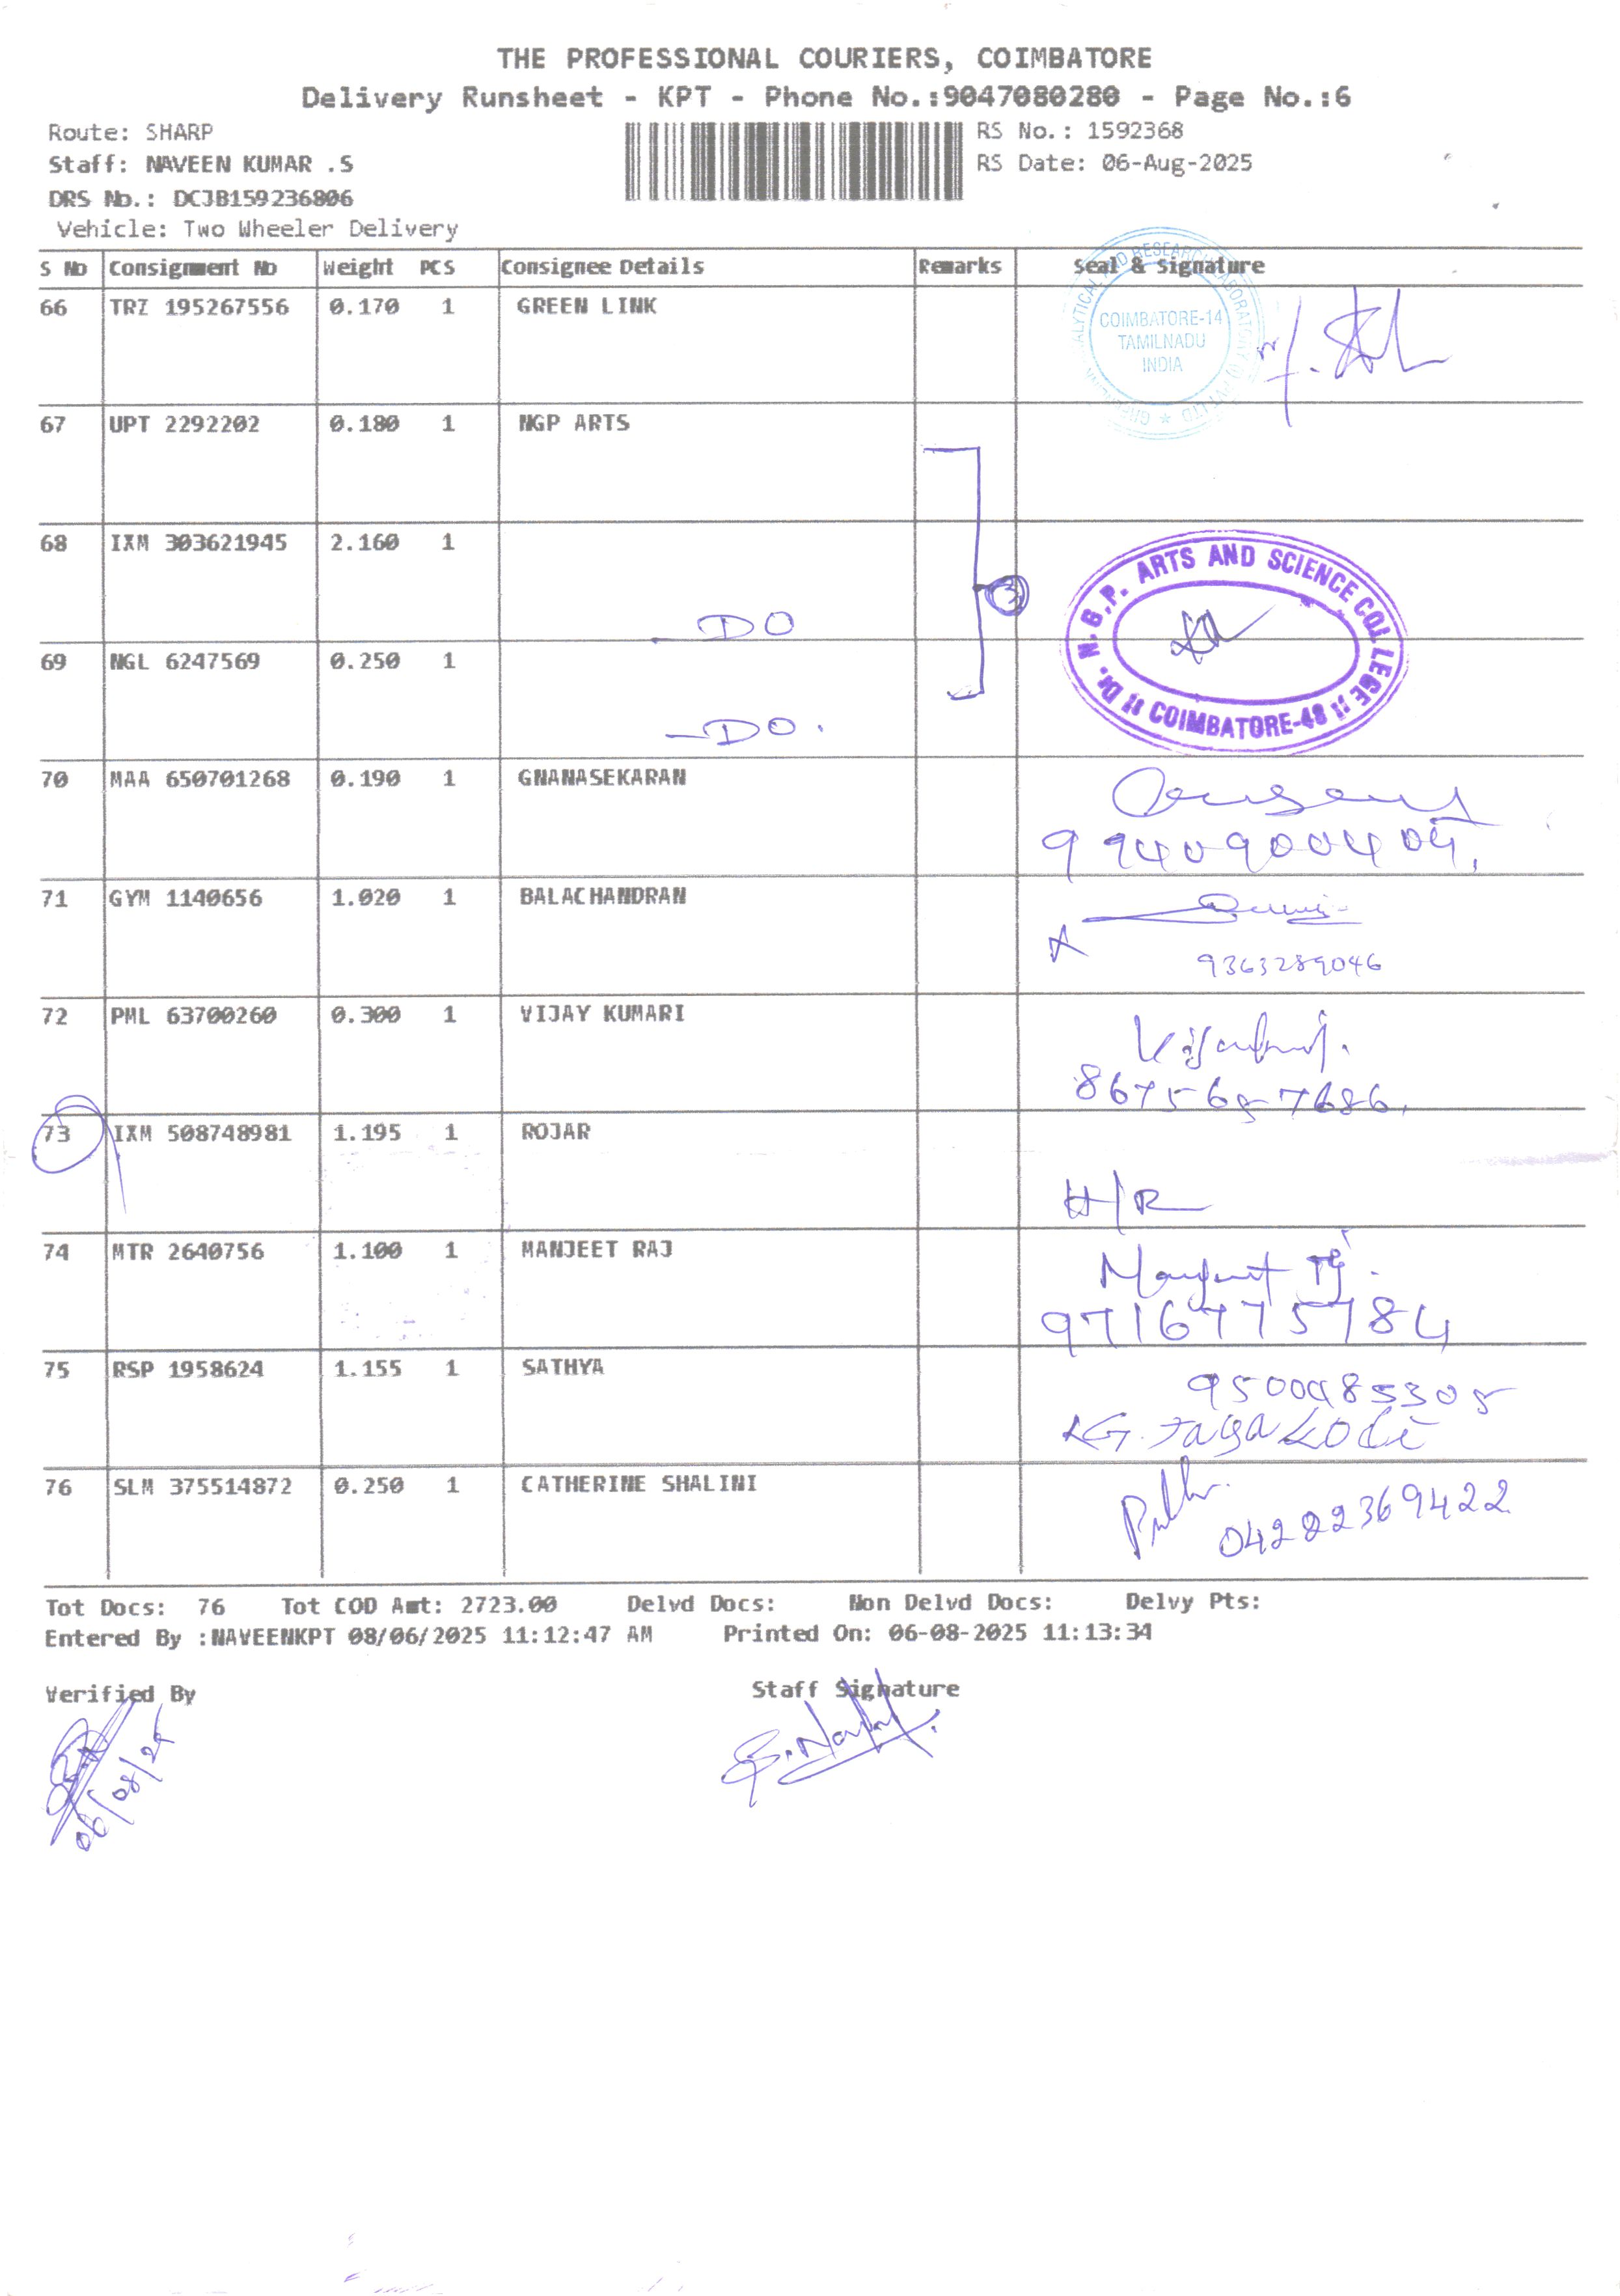 THE PROFESSIONAL COURIERS, COIMBATORE
Delivery Runsheet - KPT - Phone No.:9047080280 - Page No.:6
Route: SHARP
RS No.: 1592368
Staff: NAVEEN KUMAR .S
RS Date: 06-Aug-2025
DRS No.: DCJB159236806
Vehicle: Two Wheeler Delivery
S No Consignment No Weight PCS Consignee Details Remarks Seal & Signature
66 TRZ 195267556 0.170 1 GREEN LINK
COIMBATORE-14
TAMILNADU
INDIA
67 UPT 2292202 0.180 1 NGP ARTS
68 IXM 303621945 2.160 1
DO
3
69 NGL 6247569 0.250 1
DO.
Dr. N.G.P. ARTS AND SCIENCE COLLEGE
COIMBATORE-48
70 MAA 650701268 0.190 1 GNANASEKARAN
71 GYM 1140656 1.020 1 BALACHANDRAN
9363289046
72 PML 63700260 0.300 1 VIJAY KUMARI
73 IXM 508748981 1.195 1 ROJAR
H/R
74 MTR 2640756 1.100 1 MANJEET RAJ
75 RSP 1958624 1.155 1 SATHYA
76 SLM 375514872 0.250 1 CATHERINE SHALINI
04222369422
Tot Docs: 76 Tot COD Amt: 2723.00 Delvd Docs: Non Delvd Docs: Delvy Pts:
Entered By :NAVEENKPT 08/06/2025 11:12:47 AM Printed On: 06-08-2025 11:13:34
Verified By
Staff Signature
06/08/25